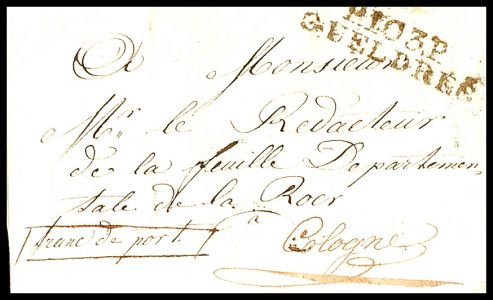 P103P
GUELDRES
A Monsieur
Mr le Rédacteur
de la feuille Departemen,
tale de la Roer
à
franc de port.
Cologne